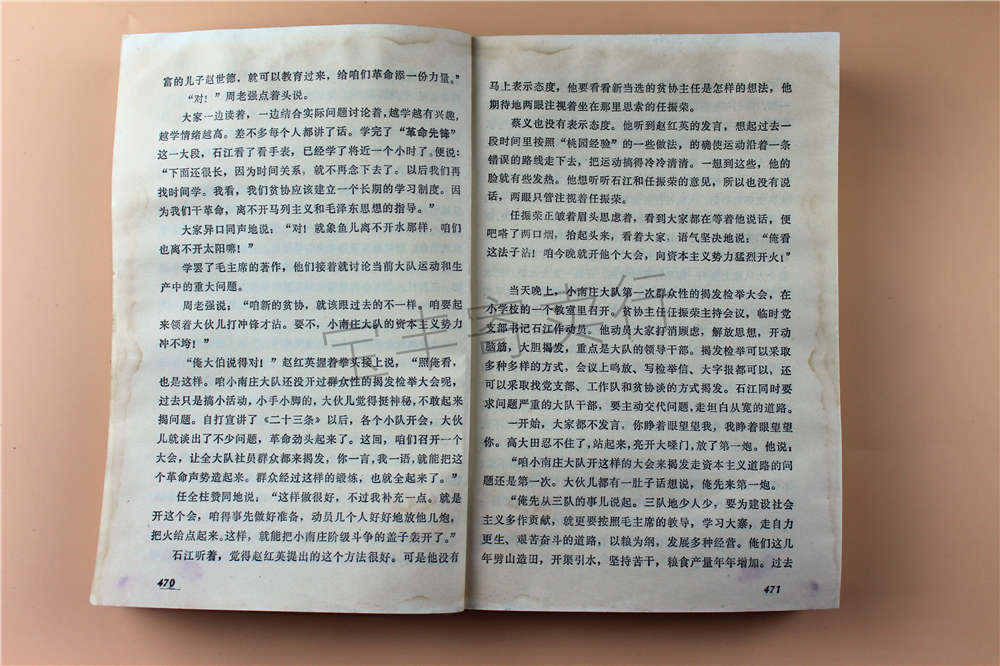 富的儿子赵世德，就可以教育过来，给咱们革命添一份力量。”
“对！”周老强点着头说。
大家一边读着，一边结合实际问题讨论着，越学越有兴趣，
越学情绪越高。差不多每个人都讲了话。学完了“革命先锋”
这一大段，石江看了看手表，已经学了将近一个小时了。便说：
“下面还很长，因为时间关系，就不再念下去了。以后我们再
找时间学。我看，我们贫协应该建立一个长期的学习制度。因
为我们干革命，离不开马列主义和毛泽东思想的指导。”
大家异口同声地说：“对！就象鱼儿离不开水那样，咱们
也离不开太阳嘛！”
学罢了毛主席的著作，他们接着就讨论当前大队运动和生
产中的重大问题。
周老强说：“咱新的贫协，就该跟过去的不一样。咱要起
来领着大伙儿打冲锋才沾。要不，小南庄大队的资本主义势力
冲不垮！”
“俺大伯说得对！”赵红英握着拳头接上说，“照俺看，
也是这样。咱小南庄大队还没开过群众性的揭发检举大会呢，
过去只是搞小活动，小手小脚的，大伙儿觉得挺神秘，不敢起来
揭问题。自打宣讲了《二十三条》以后，各个小队开会，大伙
儿就谈出了不少问题，革命劲头起来了。这回，咱们召开一个
大会，让全大队社员群众都来揭发，你一言，我一语，就能把这
个革命声势造起来。群众经过这样的锻炼，也就全起来了。”
任全柱赞同地说：“这样做很好，不过我补充一点。就是
开这个会，咱得事先做好准备，动员几个人好好地放他几炮，
把火给点起来。这样，就能把小南庄阶级斗争的盖子轰开了。”
石江听着，觉得赵红英提出的这个方法很好。可是他没有
470
马上表示态度，他要看看新当选的贫协主任是怎样的想法，他
期待地两眼注视着坐在那里思索的任振荣。
蔡义也没有表示态度。他听到赵红英的发言，想起过去一
段时间里按照“桃园经验”的一些做法，的确使运动沿着一条
错误的路线走下去，把运动搞得冷冷清清。一想到这些，他的
脸就有些发热。他想听听石江和任振荣的意见，所以也没有说
话，两眼只管注视着任振荣。
任振荣正皱着眉头思虑着，看到大家都在等着他说话，便
吧嗒了两口烟，抬起头来，看着大家，语气坚决地说：“俺看
这法子沾！咱今晚就开他个大会，向资本主义势力猛烈开火！”
当天晚上，小南庄大队第一次群众性的揭发检举大会，在
小学校的一个教室里召开。贫协主任任振荣主持会议，临时党
支部书记石江作动员。他动员大家打消顾虑，解放思想，开动
脑筋，大胆揭发，重点是大队的领导干部。揭发检举可以采取
多种多样的方式，会议上鸣放、写检举信、大字报都可以，还
可以采取找党支部、工作队和贫协谈的方式揭发。石江同时要
求问题严重的大队干部，要主动交代问题，走坦白从宽的道路。
一开始，大家都不发言，你睁着眼望望我，我睁着眼望望
你。高大田忍不住了，站起来，亮开大嗓门，放了第一炮。他说：
“咱小南庄大队开这样的大会来揭发走资本主义道路的问
题还是第一次。大伙儿都有一肚子话想说，俺先来第一炮。
“俺先从三队的事儿说起。三队地少人少，要为建设社会
主义多作贡献，就更要按照毛主席的教导，学习大寨，走自力
更生、艰苦奋斗的道路，以粮为纲，发展多种经营。俺们这几
年劈山造田，开渠引水，坚持苦干，粮食产量年年增加。过去
471
宝丰寄卖行